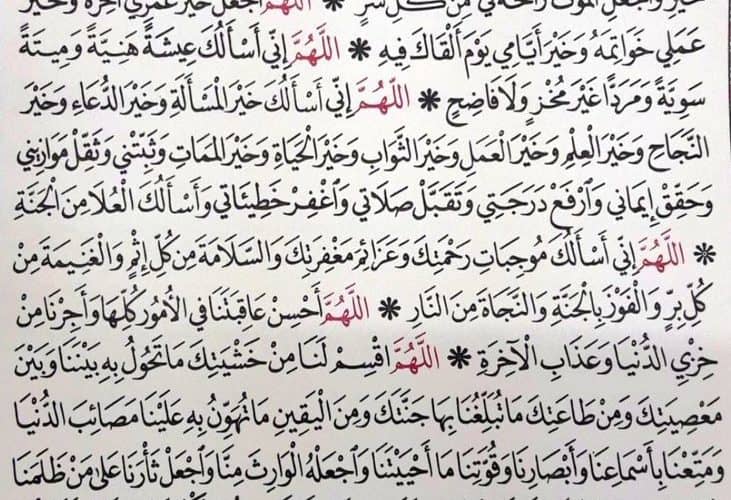 خَيْرٍ وَاجْعَلِ الْمَوْتَ رَاحَةً لِي مِنْ كُلِّ شَرٍّ ❋ اللَّهُمَّ اجْعَلْ خَيْرَ عُمْرِي آخِرَهُ وَخَيْرَ
عَمَلِي خَوَاتِمَهُ وَخَيْرَ أَيَّامِي يَوْمَ أَلْقَاكَ فِيهِ ❋ اللَّهُمَّ إِنِّي أَسْأَلُكَ عِيشَةً هَنِيَّةً وَمِيتَةً
سَوِيَّةً وَمَرَدًّا غَيْرَ مُخْزٍ وَلَا فَاضِحٍ ❋ اللَّهُمَّ إِنِّي أَسْأَلُكَ خَيْرَ الْمَسْأَلَةِ وَخَيْرَ الدُّعَاءِ وَخَيْرَ
النَّجَاحِ وَخَيْرَ الْعِلْمِ وَخَيْرَ الْعَمَلِ وَخَيْرَ الثَّوَابِ وَخَيْرَ الْحَيَاةِ وَخَيْرَ الْمَمَاتِ وَثَبِّتْنِي وَثَقِّلْ مَوَازِينِي
وَحَقِّقْ إِيمَانِي وَارْفَعْ دَرَجَتِي وَتَقَبَّلْ صَلَاتِي وَاغْفِرْ خَطِيئَاتِي وَأَسْأَلُكَ الْعُلَا مِنَ الْجَنَّةِ
❋ اللَّهُمَّ إِنِّي أَسْأَلُكَ مُوجِبَاتِ رَحْمَتِكَ وَعَزَائِمَ مَغْفِرَتِكَ وَالسَّلَامَةَ مِنْ كُلِّ إِثْمٍ وَالْغَنِيمَةَ مِنْ
كُلِّ بِرٍّ وَالْفَوْزَ بِالْجَنَّةِ وَالنَّجَاةَ مِنَ النَّارِ ❋ اللَّهُمَّ أَحْسِنْ عَاقِبَتَنَا فِي الْأُمُورِ كُلِّهَا وَأَجِرْنَا مِنْ
خِزْيِ الدُّنْيَا وَعَذَابِ الْآخِرَةِ ❋ اللَّهُمَّ اقْسِمْ لَنَا مِنْ خَشْيَتِكَ مَا تَحُولُ بِهِ بَيْنَنَا وَبَيْنَ
مَعْصِيَتِكَ وَمِنْ طَاعَتِكَ مَا تُبَلِّغُنَا بِهَا جَنَّتَكَ وَمِنَ الْيَقِينِ مَا تُهَوِّنُ بِهِ عَلَيْنَا مَصَائِبَ الدُّنْيَا
وَمَتِّعْنَا بِأَسْمَاعِنَا وَأَبْصَارِنَا وَقُوَّتِنَا مَا أَحْيَيْتَنَا وَاجْعَلْهُ الْوَارِثَ مِنَّا وَاجْعَلْ ثَأْرَنَا عَلَى مَنْ ظَلَمَنَا